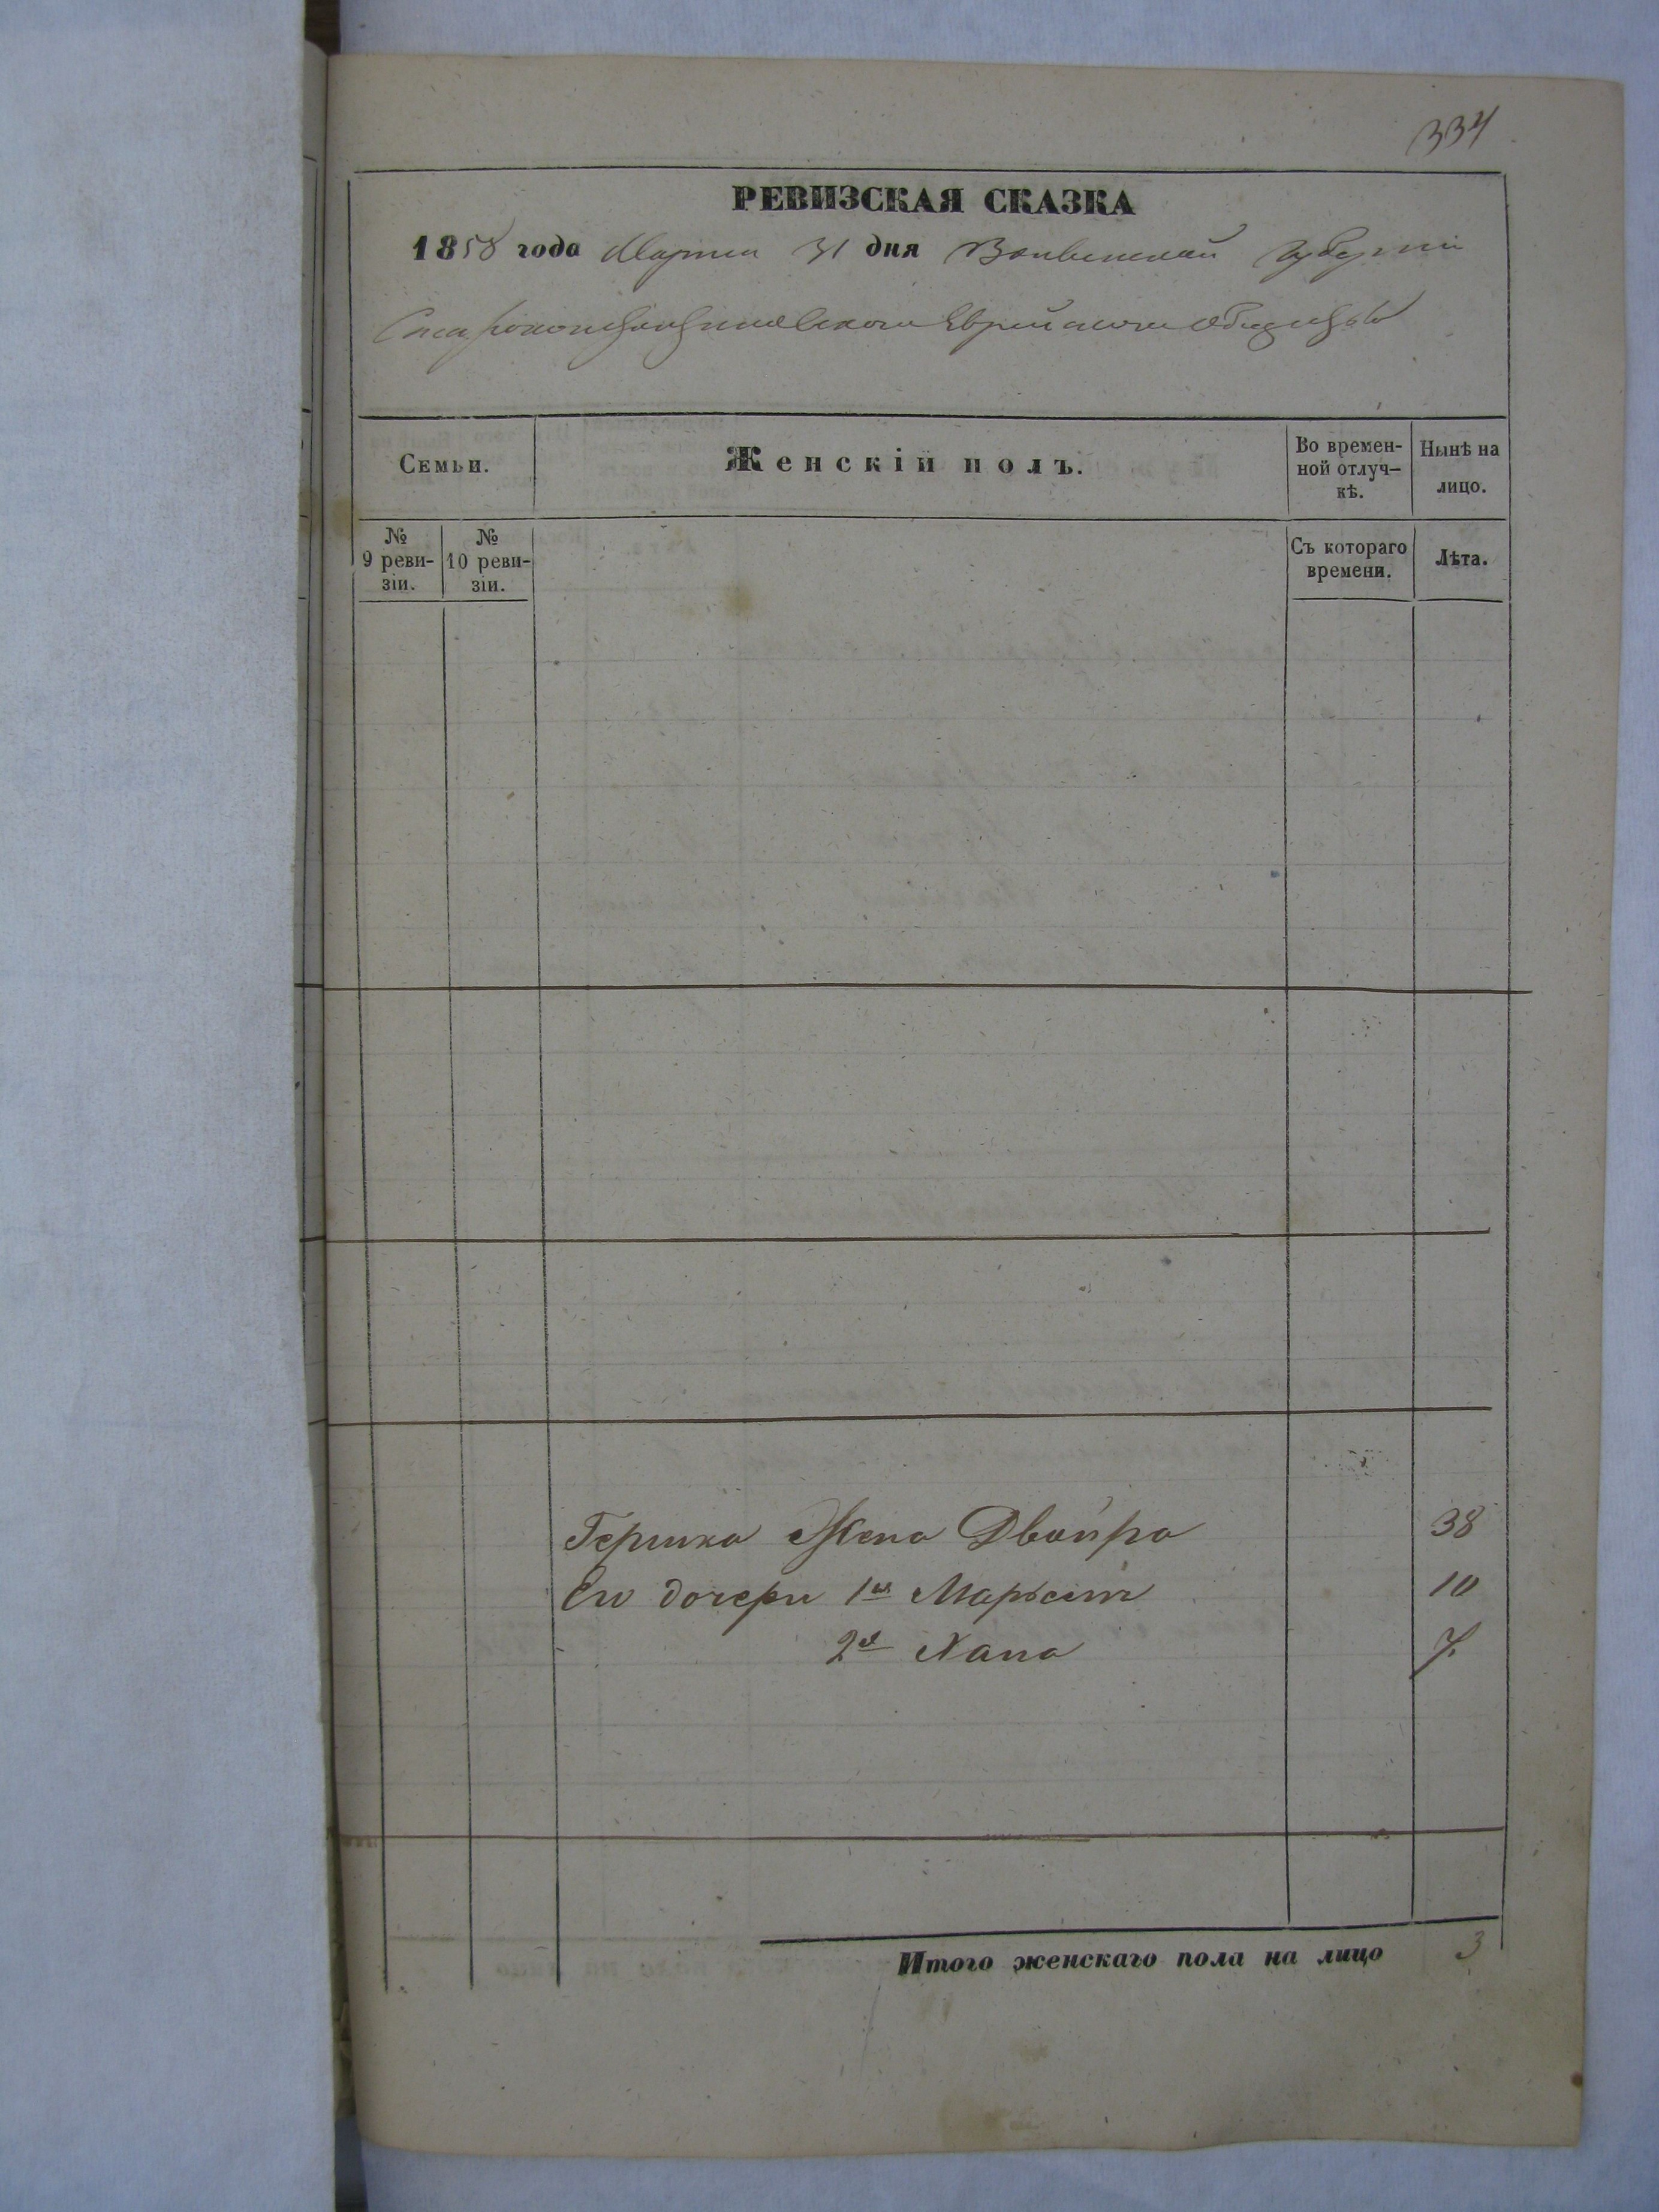 334
РЕВИЗСКАЯ СКАЗКА
1858 года Марта 31 дня Волынской Губернии
Староконстантиновского Еврейского общества
Семьи.
Женскій полъ.
Во времен-
ной отлуч-
кѣ.
Нынѣ на
лицо.
№
9 реви-
зіи.
№
10 реви-
зіи.
Съ котораго
времени.
Лѣта.
Гершка Жена Двойра 38
Его дочери 1я Марьям 10
2я Хана 7.
Итого женскаго пола на лицо 3